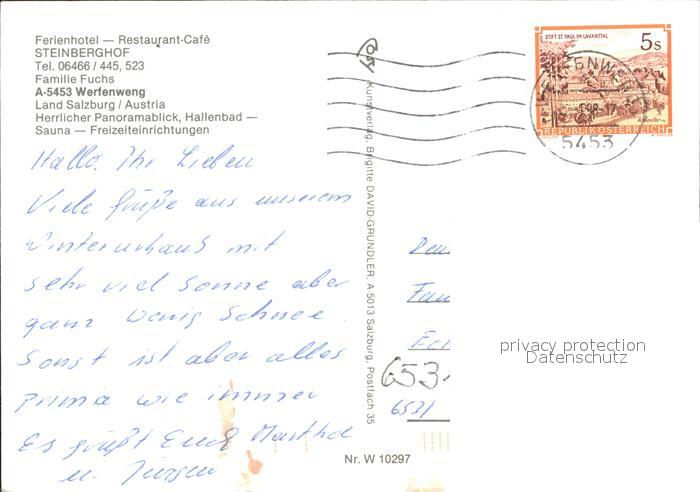 Ferienhotel — Restaurant-Café
STEINBERGHOF
Tel. 06466 / 445, 523
Familie Fuchs
A-5453 Werfenweng
Land Salzburg / Austria
Herrlicher Panoramablick, Hallenbad —
Sauna — Freizeiteinrichtungen
Hallo, Ihr Lieben
Viele Grüße aus unserem
Winterurlaub mit
sehr viel Sonne aber
ganz wenig Schnee.
Sonst ist aber alles
prima wie immer
Es grüßt Euch Martha
u. Jürgen
Kunstverlag, Brigitte DAVID-GRUNDLER, A 5013 Salzburg, Postfach 35
Nr. W 10297
STIFT ST. PAUL IM LAVANTTAL
5s
REPUBLIK ÖSTERREICH
5453
Fam
653
6531
privacy protection
Datenschutz